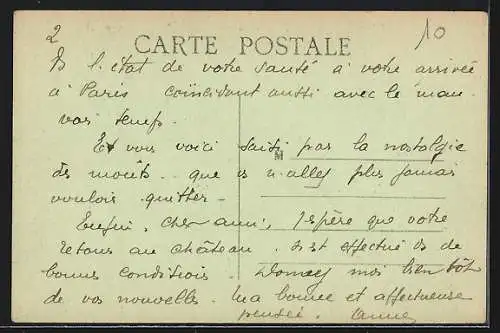 2
10
CARTE POSTALE
l'état de votre santé à votre arrivée
à Paris coïncidant aussi avec le mau-
vais temps.
Et vous voici saisi par la nostalgie
des monts que n'allez plus jamais
vouloir quitter.
Enfin, cher ami, j'espère que votre
retour au château s'est effectué de
bonnes conditions. Donnez moi bien tôt
de vos nouvelles. Ma bonne et affectueuse
pensée. Anna
M